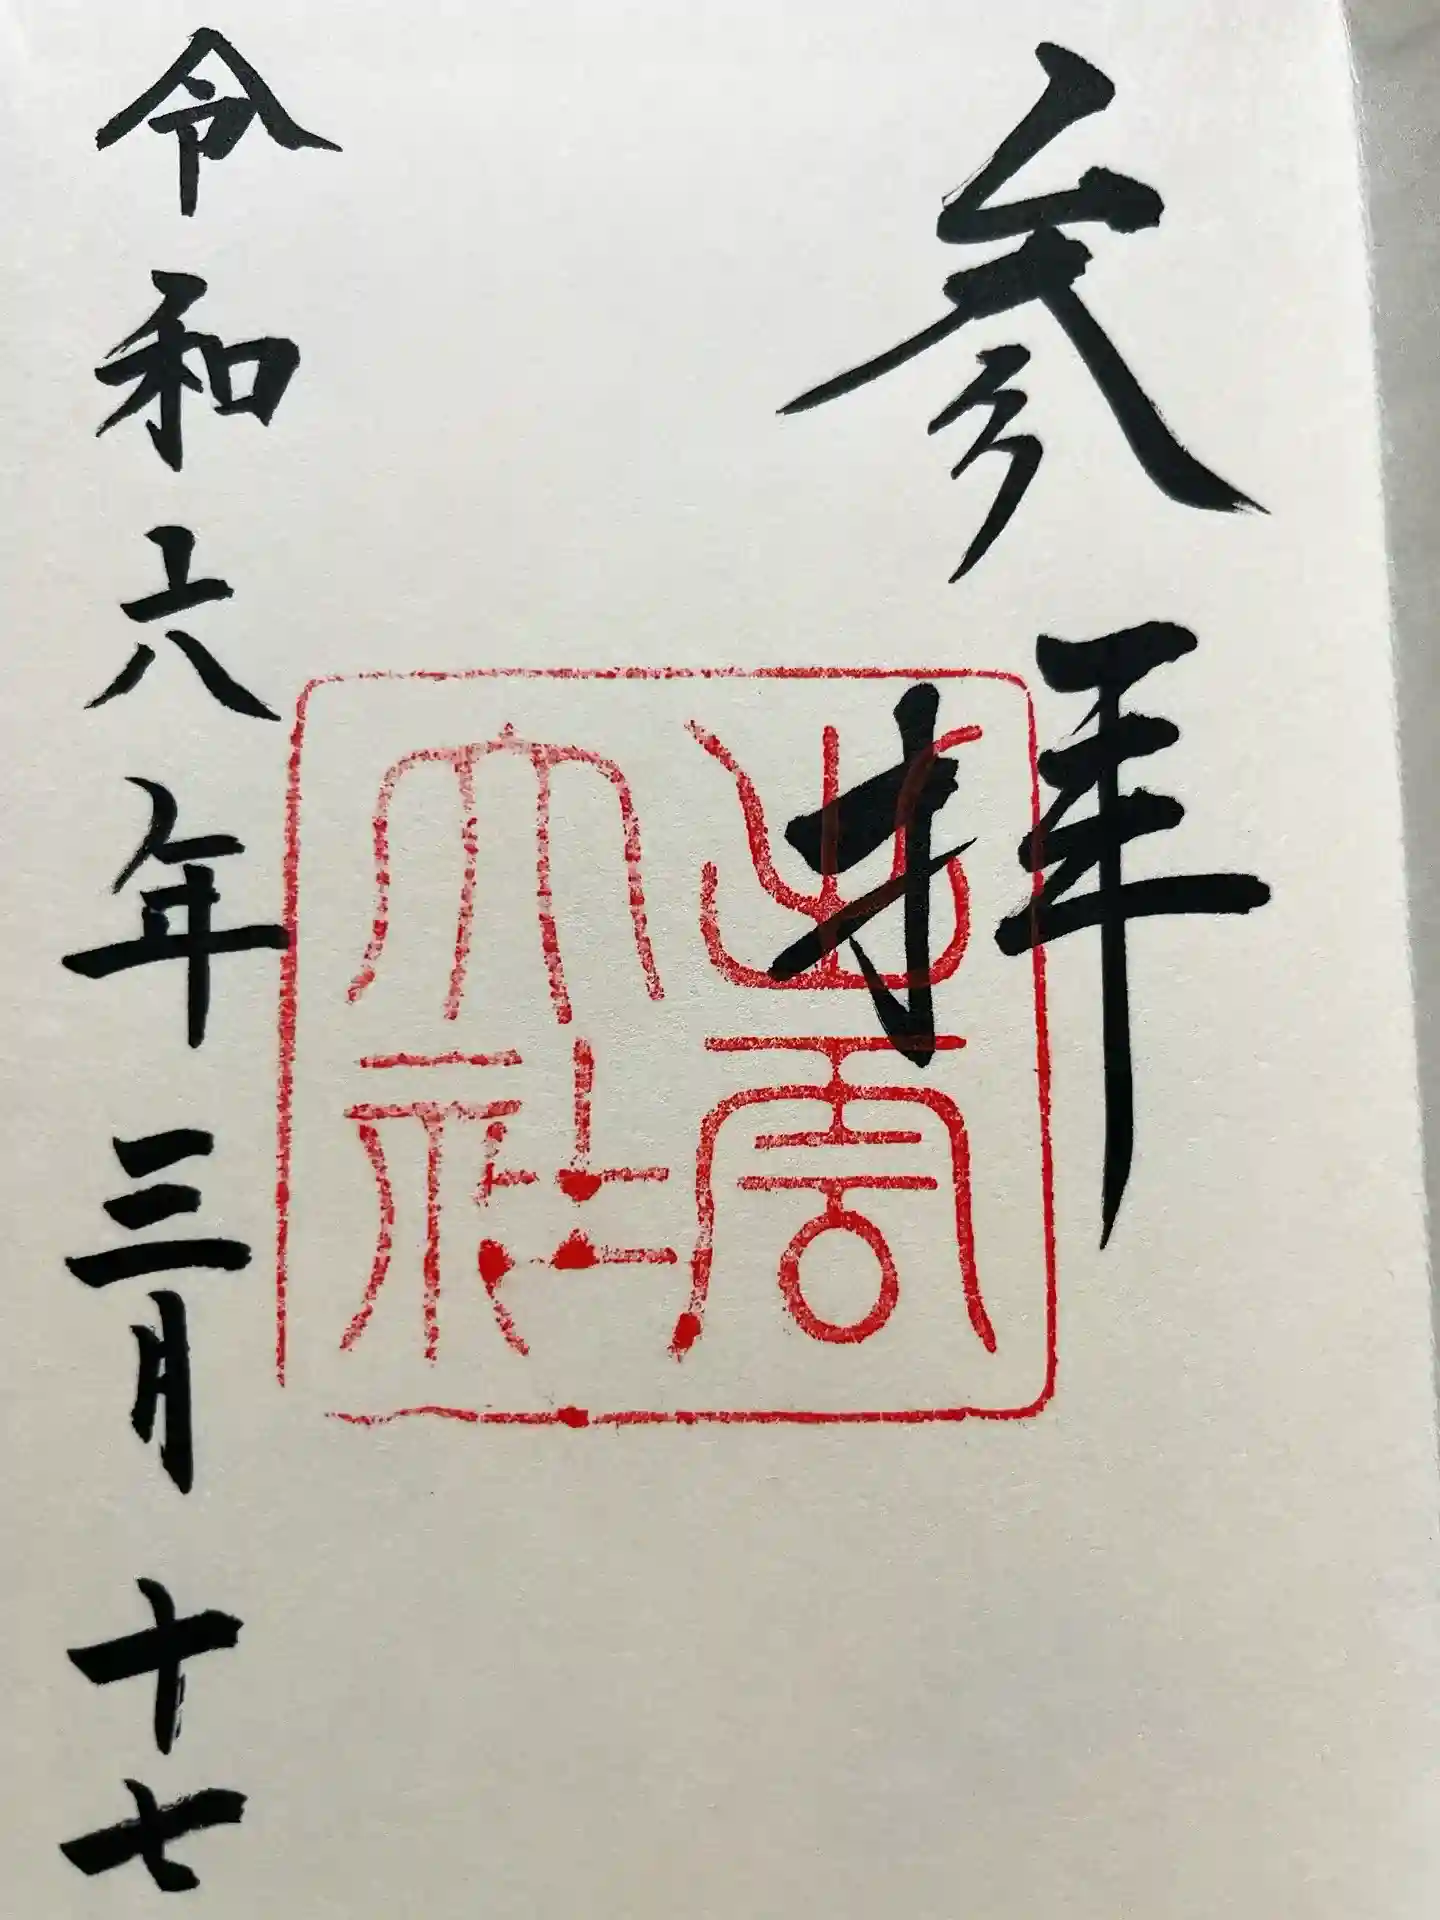 参拝
出雲大社
令和六年三月十七